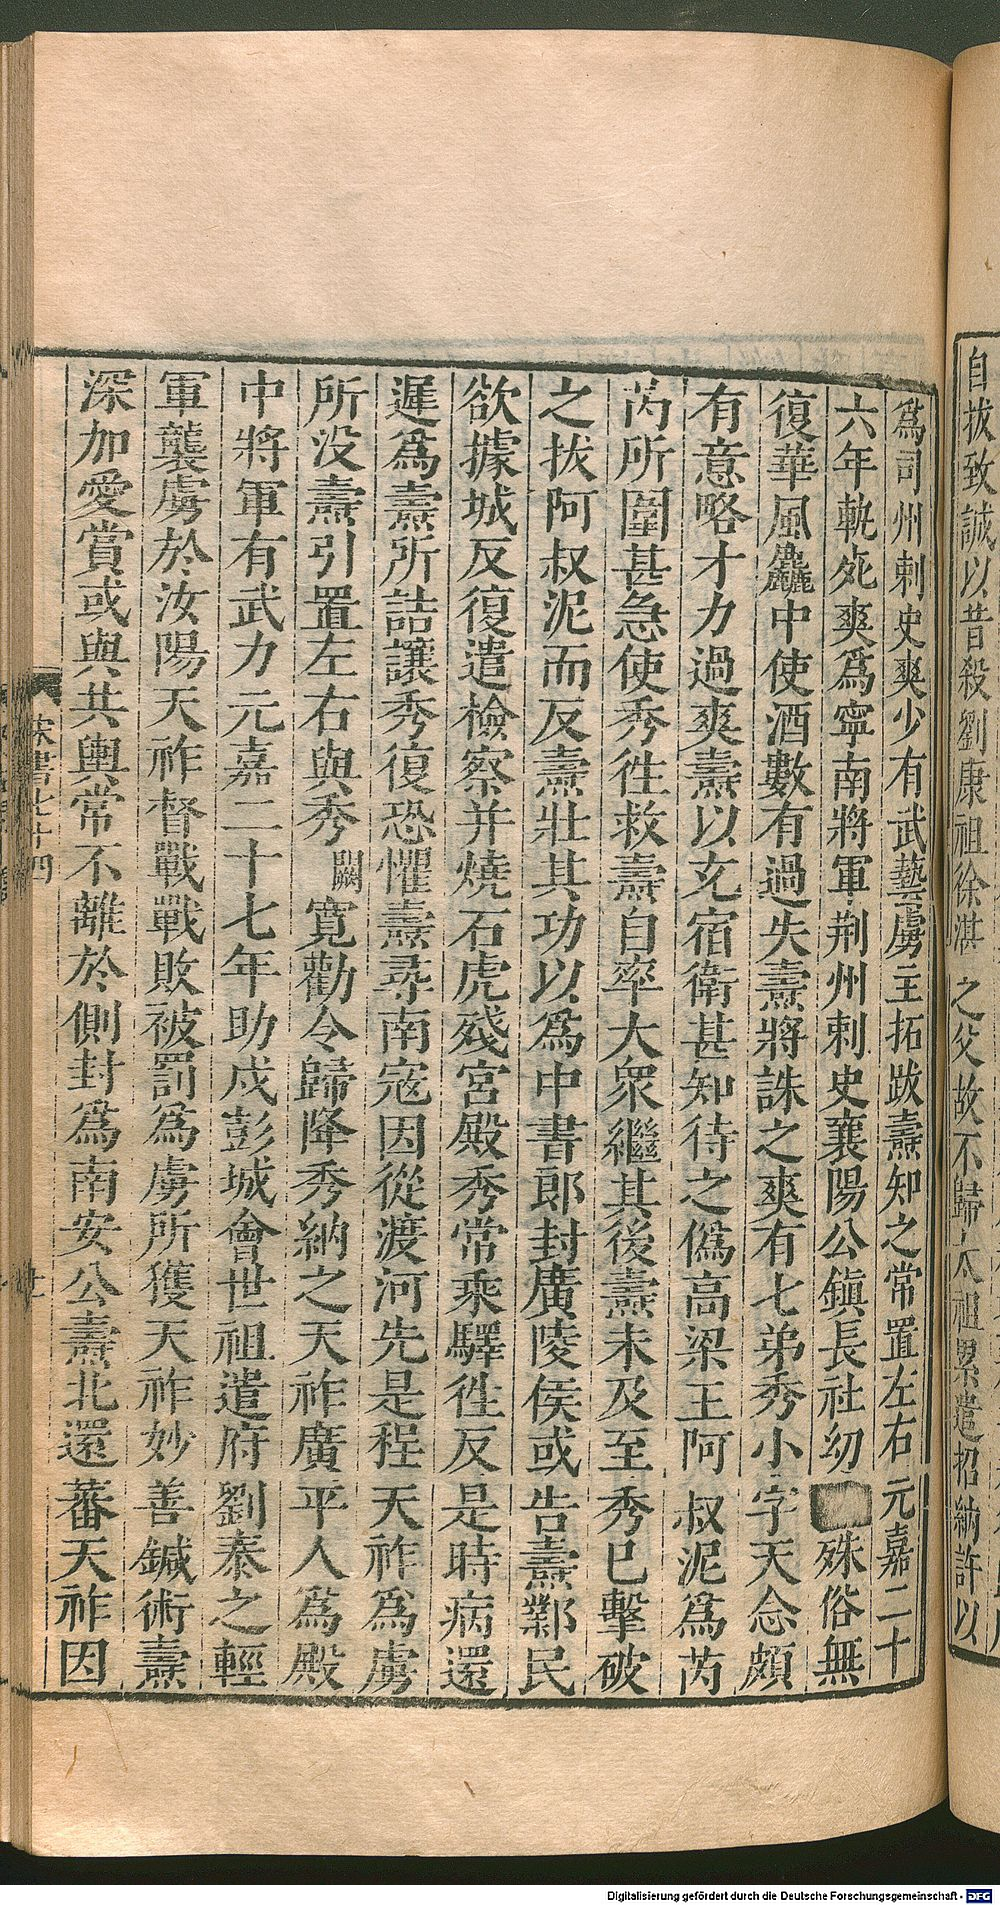 自拔致誠以昔殺劉康祖徐湛之父故不歸太祖累遣招納許以
爲司州刺史爽少有武藝虜主拓跋燾知之常置左右元嘉二十
六年軌死爽爲寧南將軍荆州刺史襄陽公鎮長社幼殊俗無
復華風麤中使酒數有過失燾將誅之爽有七弟秀小字天念頗
有意略才力過爽燾以充宿衛甚知待之僞高梁王阿叔泥爲芮
芮所圍甚急使秀徃救燾自率大衆繼其後燾未及至秀已擊破
之拔阿叔泥而反燾壯其功以爲中書郎封廣陵侯或告燾鄴民
欲據城反復遣檢察并燒石虎殘宮殿秀常乘驛徃反是時病還
遲爲燾所詰讓秀復恐懼燾尋南寇因從渡河先是程天祚爲虜
所没燾引置左右與秀闕寛勸令歸降秀納之天祚廣平人爲殿
中將軍有武力元嘉二十七年助戍彭城會世祖遣府劉泰之輕
軍襲虜於汝陽天祚督戰戰敗被罰爲虜所獲天祚妙善鍼術燾
深加愛賞或與共輿常不離於側封爲南安公燾北還蕃天祚因
宋書七十四
Digitalisierung gefördert durch die Deutsche Forschungsgemeinschaft - DFG